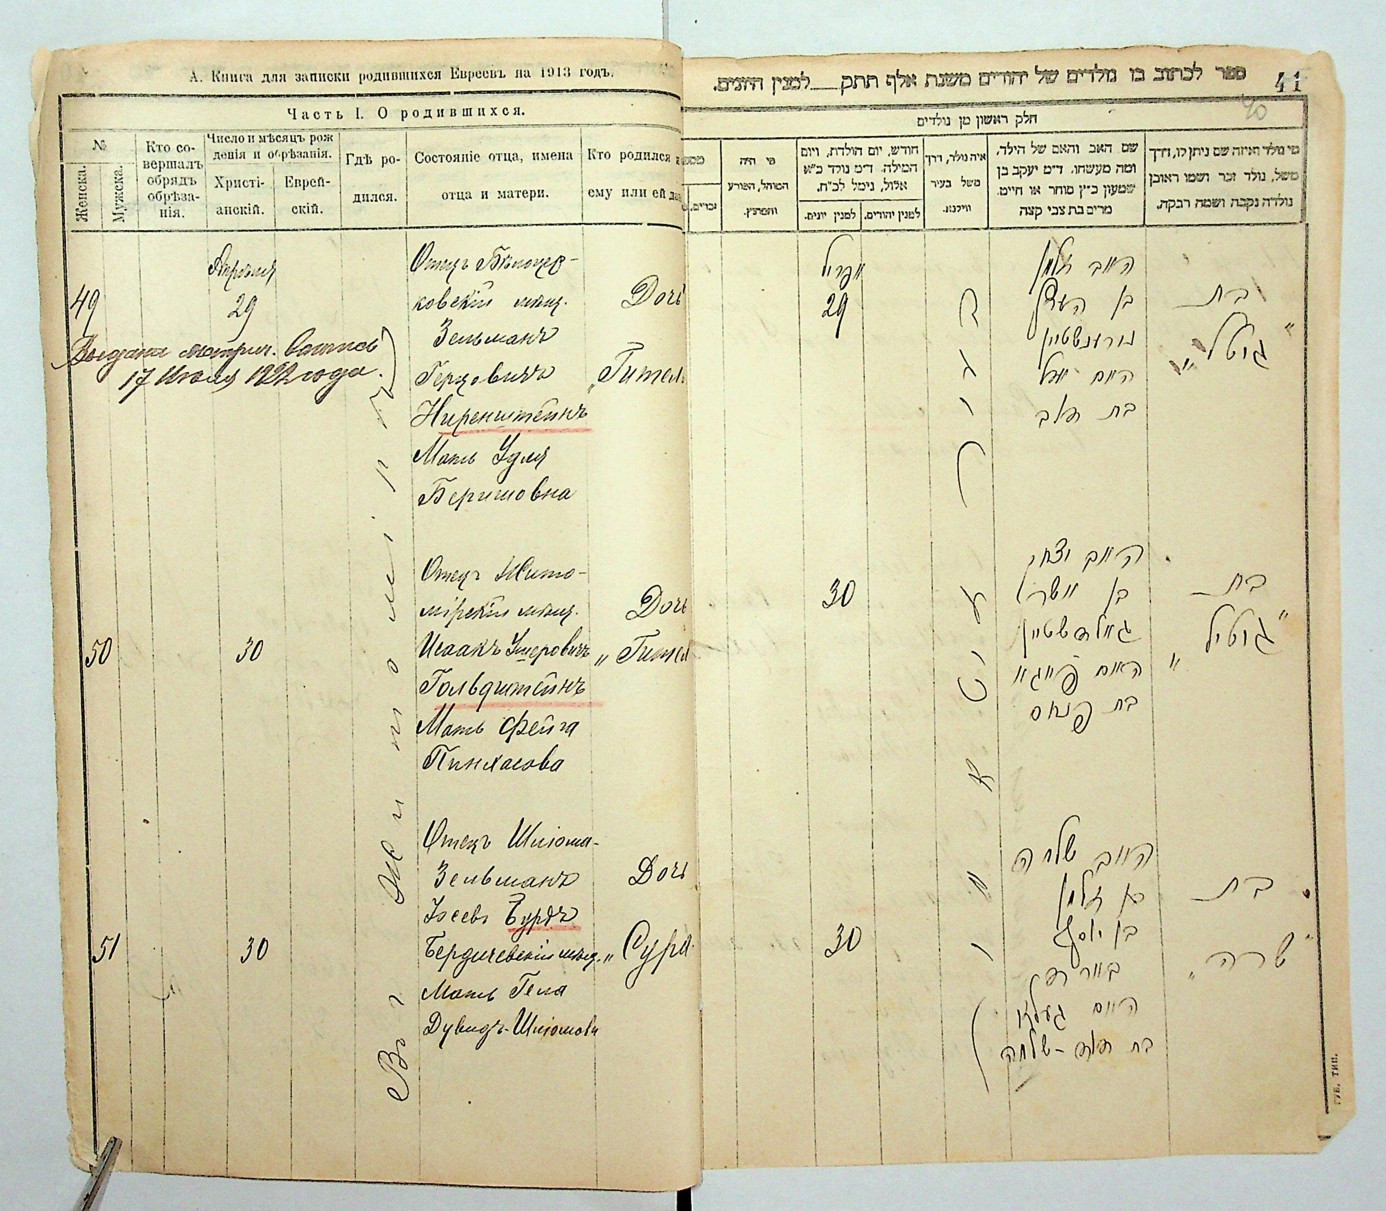 А. Книга для записки родившихся Евреевъ на 1913 годъ.
Часть I. О родившихся.
№
Женска.
Мужска.
Кто совершалъ обрядъ обрѣзанія.
Число и мѣсяцъ рожденія и обрѣзанія.
Христіанскій.
Еврейскій.
Гдѣ родился.
Состояніе отца, имена
отца и матери.
Кто родился
ему или ей
Апрѣля
49
29
Отецъ Бѣлоцер-
ковскій мѣщ.
Зельманъ
Герцовичъ
Ниренштейнъ
Мать Удля
Беришовна
Дочь
„Гитель
Выдана метрич. выпись
17 Июля 1922 года.
Въ г. Житомірѣ
50
30
Отецъ Жито-
мірскій мѣщ.
Исаакъ Ушеровичъ
Гольдштейнъ
Мать Фейга
Пинхасова
Дочь
„Гител
51
30
Отецъ Шлюма-
Зельманъ
Іосевъ Бурдъ
Бердичевскій мѣщ.
Мать Гела
Дувидъ-Шлюмова
Дочь
„Сура
ספר לכתוב בו נולדים של יהודים משנת אלף תתק___למנין היונים.
41
40
חלק ראשון מן נולדים
מי היה
המוהל, הפורע
והמוצץ.
חודש, יום הולדת, ויום
המילה. ד״מ נולד כ״א
אלול, נימל לכ״ח.
למנין יונים.
למנין יהודים.
איה נולד, דרך
משל בעיר
ווילנא.
שם האב והאם של הילד,
ומה מעשהו. ד״מ יעקב בן
שמעון כ״ץ סוחר או חייט.
מרים בת צבי קצב
מי נולד ואיזה שם ניתן לו, דרך
משל, נולד זכר ושמו ראובן
נולדה נקבה ושמה רבקה.
אפריל
29
האב זלמן
בן הערץ
נירענשטיין
האם יודל
בת
בת
„גיטל״
30
האב יצחק
בן אשר
גאלדשטיין
האם פייגא
בת פנחס
בת
„גיטל״
30
האב שלמה
זלמן
בן יוסף
בורד
האם געלא
בת דוד-שלמה
בת
„שרה״
בעיר זיטאמיר
ГУБ. ТИП.